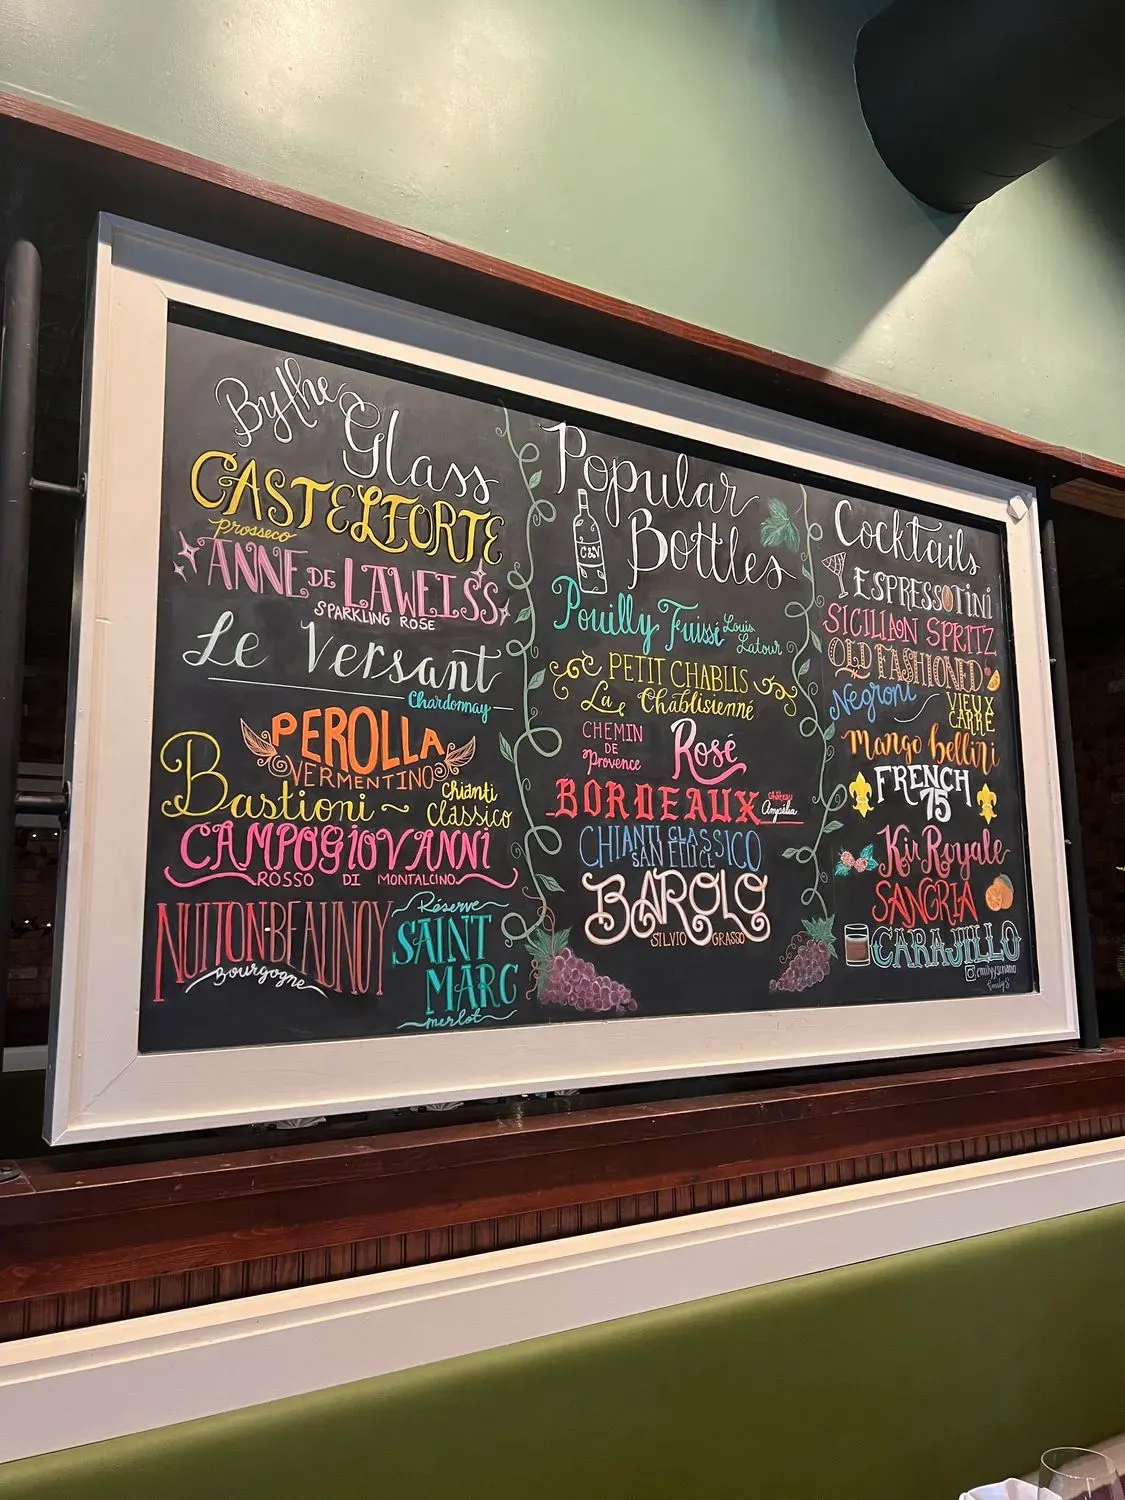 By the
Glass
CASTELFORTE
Prosseco
ANNE DE LAWEISS
SPARKLING ROSE
Le Versant
Chardonnay
PEROLLA
VERMENTINO
Bastioni ~ Chianti
Clássico
CAMPOGIOVANNI
ROSSO DI MONTALCINO
NUITON-BEAUNOY
Bourgogne
Réserve
SAINT
MARC
merlot
Popular
Bottles
C&V
Pouilly Fuissé Louis
Latour
PETIT CHABLIS
La Chablisienné
CHEMIN
DE
Provence
Rosé
BORDEAUX Château
Ampélia
CHIANTI CLASSICO
SAN FELICE
BAROLO
SILVIO GRASSO
Cocktails
ESPRESSOTINI
SICILIAN SPRITZ
OLD FASHIONED
Negroni VIEUX
CARRÉ
Mango bellini
FRENCH
75
Kir Royale
SANGRIA
CARAJILLO
Emily S